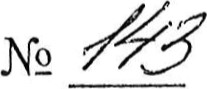 № 143